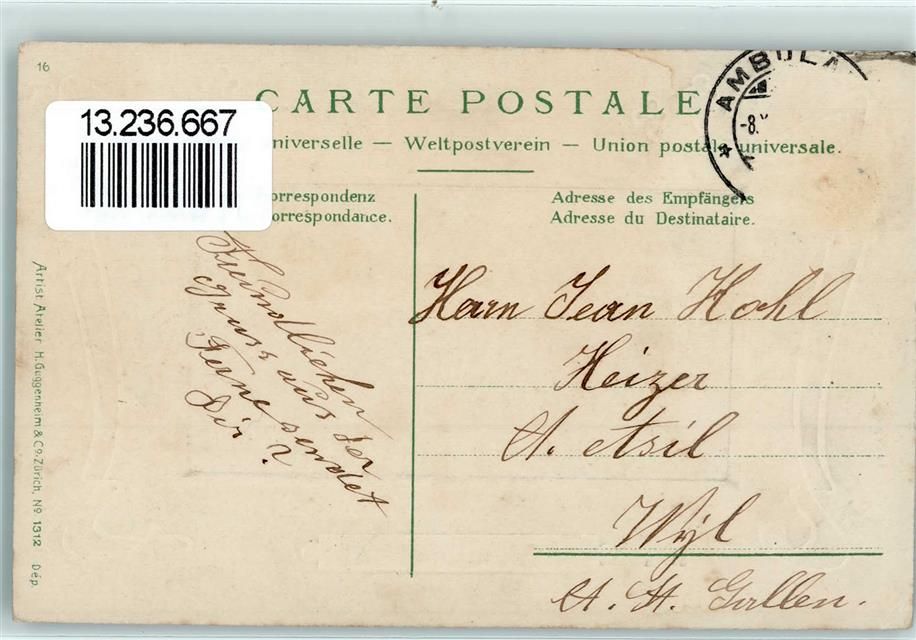 16
CARTE POSTALE
AMBULA
-8.
13.236.667
niverselle — Weltpostverein — Union postale universale.
orrespondenz
orrespondance.
Adresse des Empfängers
Adresse du Destinataire.
Freundlichen
Gruss aus der
Ferne sendet
Dir
Herrn Jean Hohl
Heizer
Wyl
St. Gallen.
Artist. Atelier H. Guggenheim & Co. Zürich, No 1312 Dép.